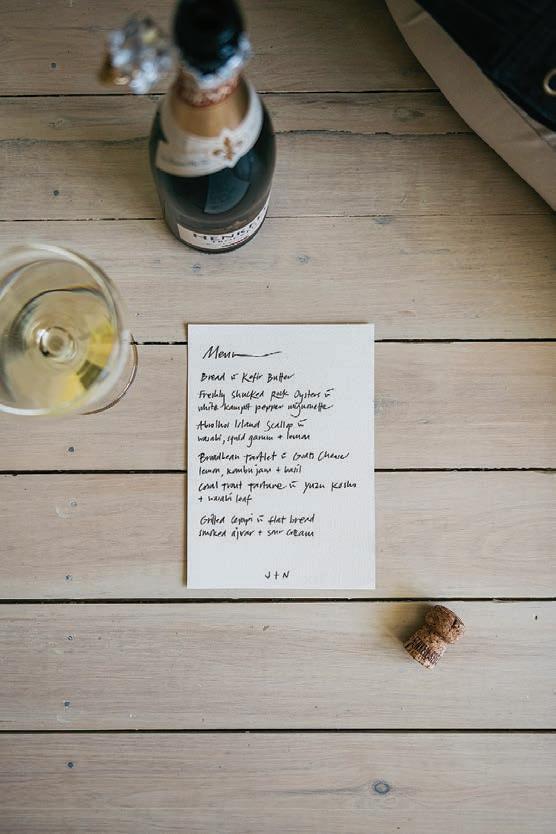 HENKELL
Menu
Bread w̄ Kefir Butter
Freshly Shucked Rock Oysters w̄
white kampot pepper mignonette
Abrolhos Island Scallop w̄
wasabi, squid garum + lemon
Broadbean tartlet w̄ Goats Cheese
lemon, kombu jam + basil
Coral Trout Tartare w̄ Yuzu Kosho
+ wasabi leaf
Grilled w̄ flat bread
smoked ajvar + sour cream
J + N